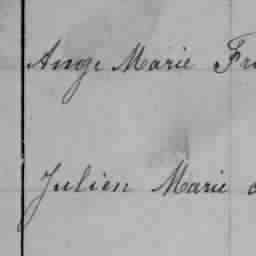 Ange Marie Fr
Julien Marie